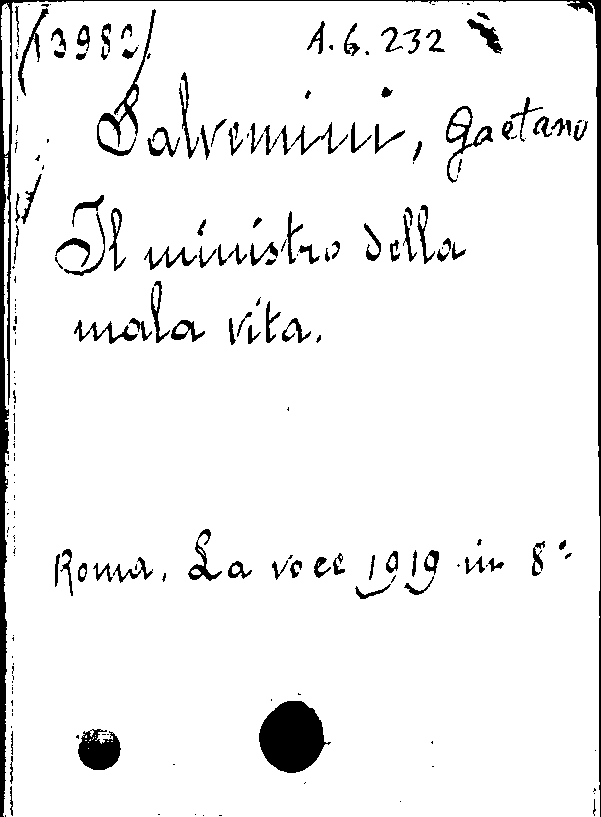 (13982) A.6.232
Salvemini, Gaetano
Il ministro della
mala vita.
Roma. La voce 1919 in 8°